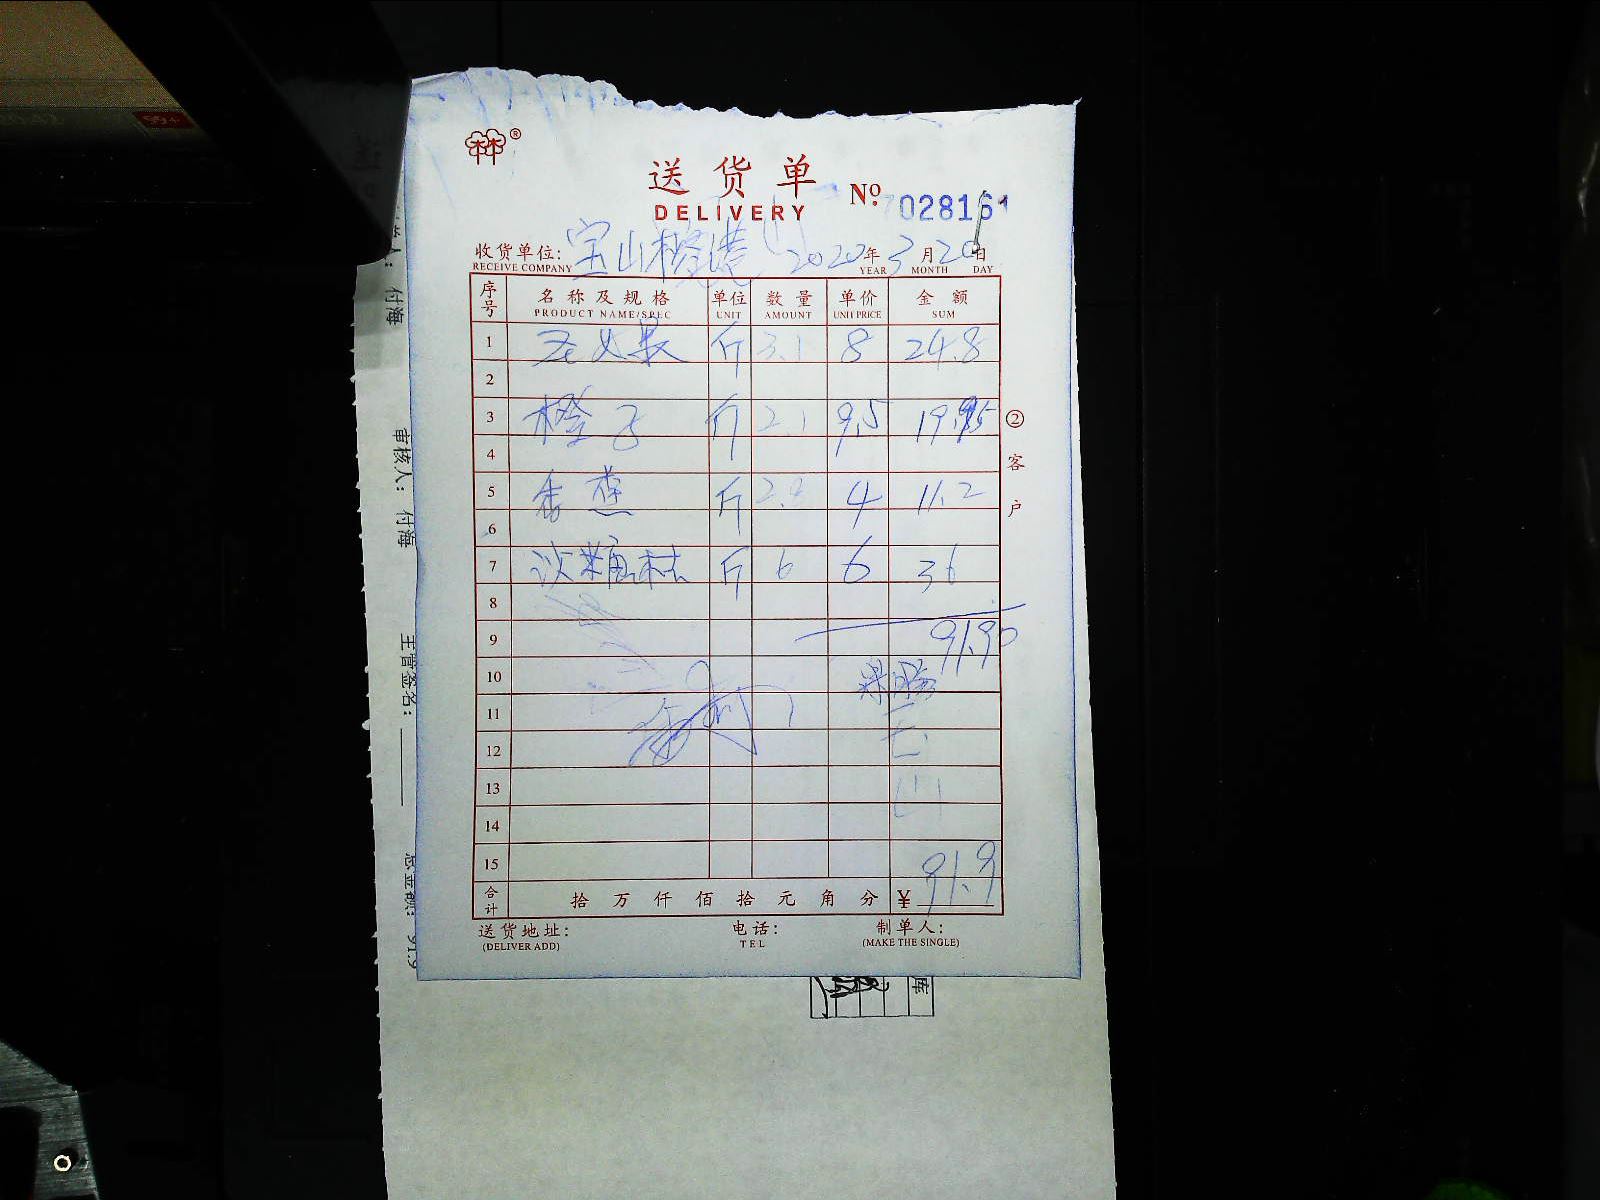 送货单
DELIVERY
No. 7028161
收货单位: 宝山 2020年3月20日
RECEIVE COMPANY YEAR MONTH DAY
序号 名称及规格 单位 数量 单价 金额
PRODUCT NAME/SPEC UNIT AMOUNT UNIT PRICE SUM
1 圣女果 斤 3.1 8 24.8
2
3 橙子 斤 2.1 9.5 19.95
4
5 香蕉 斤 2.8 4 11.2
6
7 沙糖桔 斤 6 6 36
8
9 91.90
10
11
12
13
14
15
合计 拾万仟佰拾元角分 ¥ 91.9
送货地址: 电话: 制单人:
(DELIVER ADD) TEL (MAKE THE SINGLE)
②客户
付海
审核人: 付海
主管签名:
总金额: 91.9
库